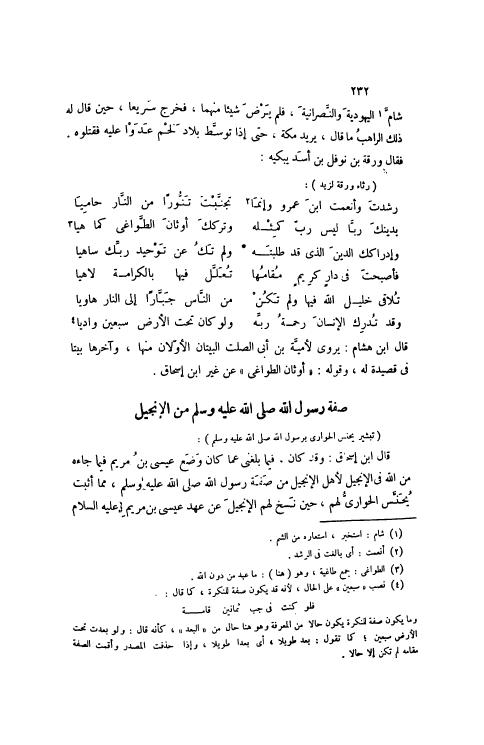 ٢٣٢
شامَّ١ اليهودية َ والنَّصرانية َ ، فلم يَرْض َ شيئا منهما ، فخرج سَريعا ، حين قال له
ذلك الراهبُ ما قال ، يريد مكة ، حتى إذا توسَّط بلاد لَخْم عَدَوْا عليه فقتلوه .
فقال ورقة بن نوفل بن أسَد يبكيه :
( رثاء ورقة لزيد ) :
رشدتَ وأنعمت ابنَ عمرو وإنما٢ تجنَّبْتَ تَنُّورًا من النَّار حاميا
بدينكَ ربًّا ليس ربّ كمِثْله وتركك أوثانَ الطَّواغى كما هيا٣
وإدراكك الدينَ الذى قد طلبتَه ولم تكُ عن تَوْحيد ربِّك ساهيا
فأصبحتَ فى دارٍ كريمٍ مُقامُها تُعلَّل فيها بالكرامة لاهيا
تُلاقى خليلَ الله فيها ولم تكنْ من النَّاس جَبَّارًا إلى النار هاويا
وقد تُدرِك الإنسانَ رحمةُ ربِّه ولو كان تحت الأرض سبعين واديا٤
قال ابن هشام : يروى لأميَّة بن أبى الصلت البيتان الأولان منها ، وآخرها بيتا
فى قصيدة له ، وقوله : « أوثان الطواغى » عن غير ابن إسحاق .
صفة رسول الله صلى الله عليه وسلم من الإنجيل
( تبشير يحنس الحوارى برسول الله صلى الله عليه وسلم ) :
قال ابن إسحاق : وقد كان . فيما بلغنى عما كان وَضَع عيسى بنُ مريم فيما جاءه
من الله فى الإنجيل لأهل الإنجيل من صفة رسول الله صلى الله عليه وسلم ، مما أثبت
يُحَنَّس الحوارىُّ لهم ، حين نَسخ لهم الإنجيلَ عن عهد عيسى بن مريم عليه السلام
(١) شام : استخبر ، استعاره من الشم .
(٢) أنعمت : أى بالغت فى الرشد .
(٣) الطواغى : جمع طاغية ، وهو ( هنا ) : ما عبد من دون الله .
(٤) نصب « سبعين » على الحال ، لأنه قد يكون صفة للنكرة ، كما قال :
فلو كنت فى جب ثمانين قامة
وما يكون صفة للنكرة يكون حالا من المعرفة وهو هنا حال من « البعد » ، كأنه قال : ولو بعدت تحت
الأرض سبعين ؛ كما تقول : بعد طويلا ، أى بعدا طويلا ، وإذا حذفت المصدر وأقمت الصفة
مقامه لم تكن إلا حالا .